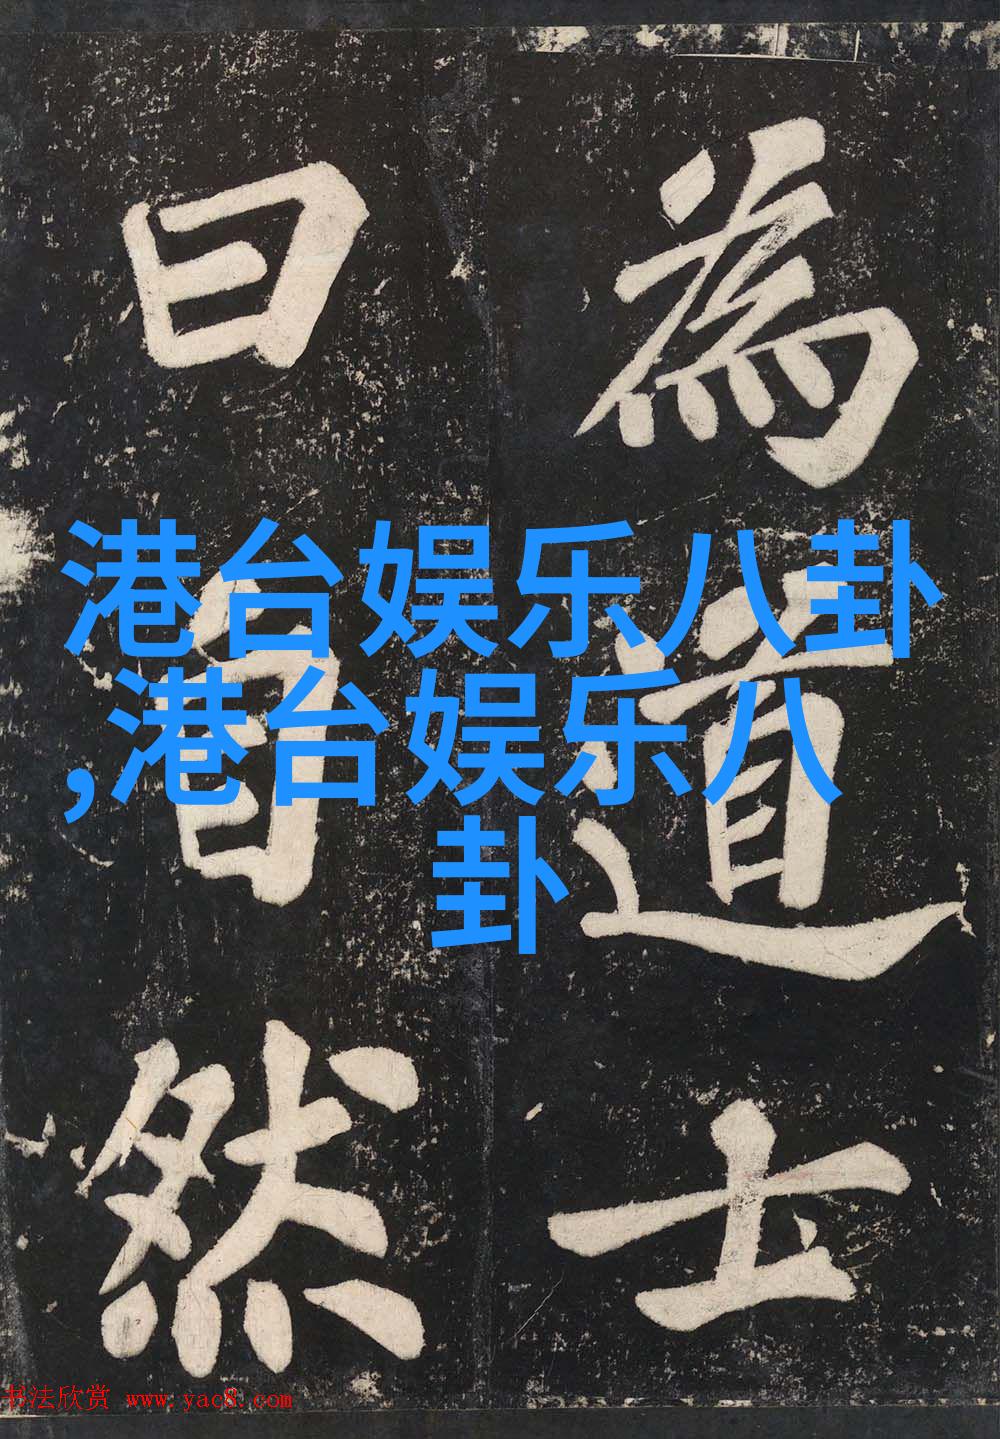 為道士
曰自然
港台娱乐八卦
,港台娱乐八
卦
书法欣赏 www.yac8.com